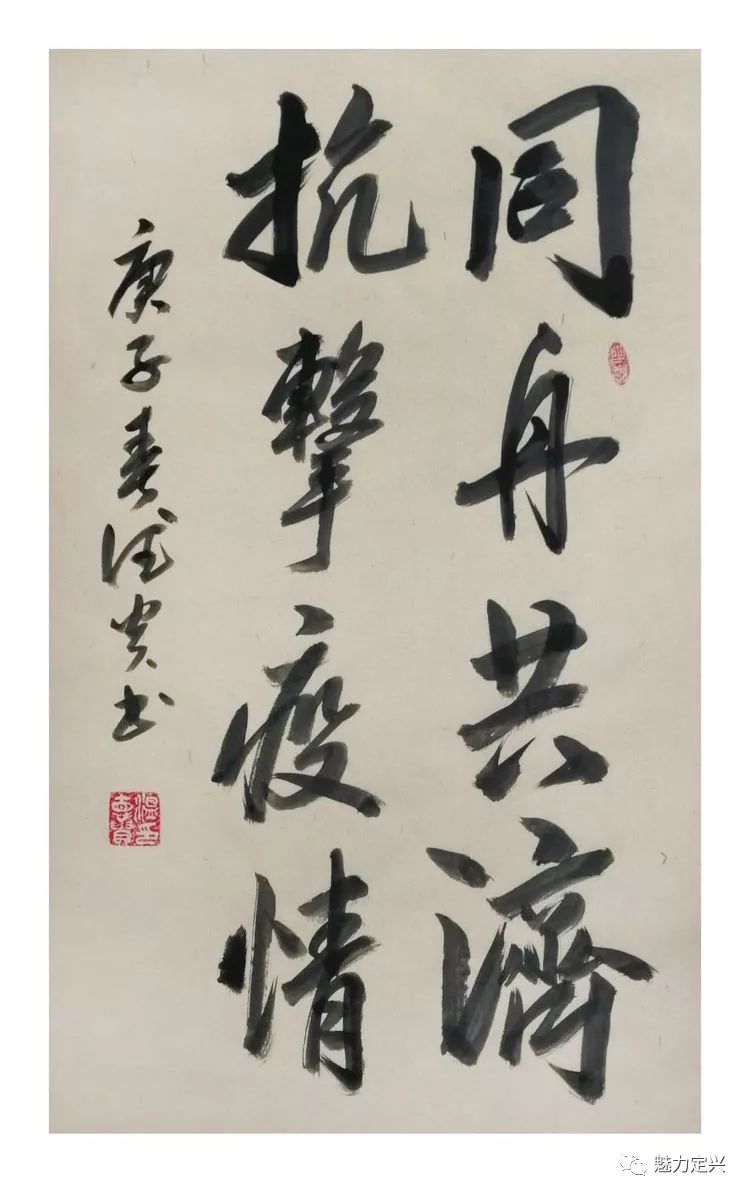 同舟共濟
抗擊疫情
庚子春贵书
魅力定兴